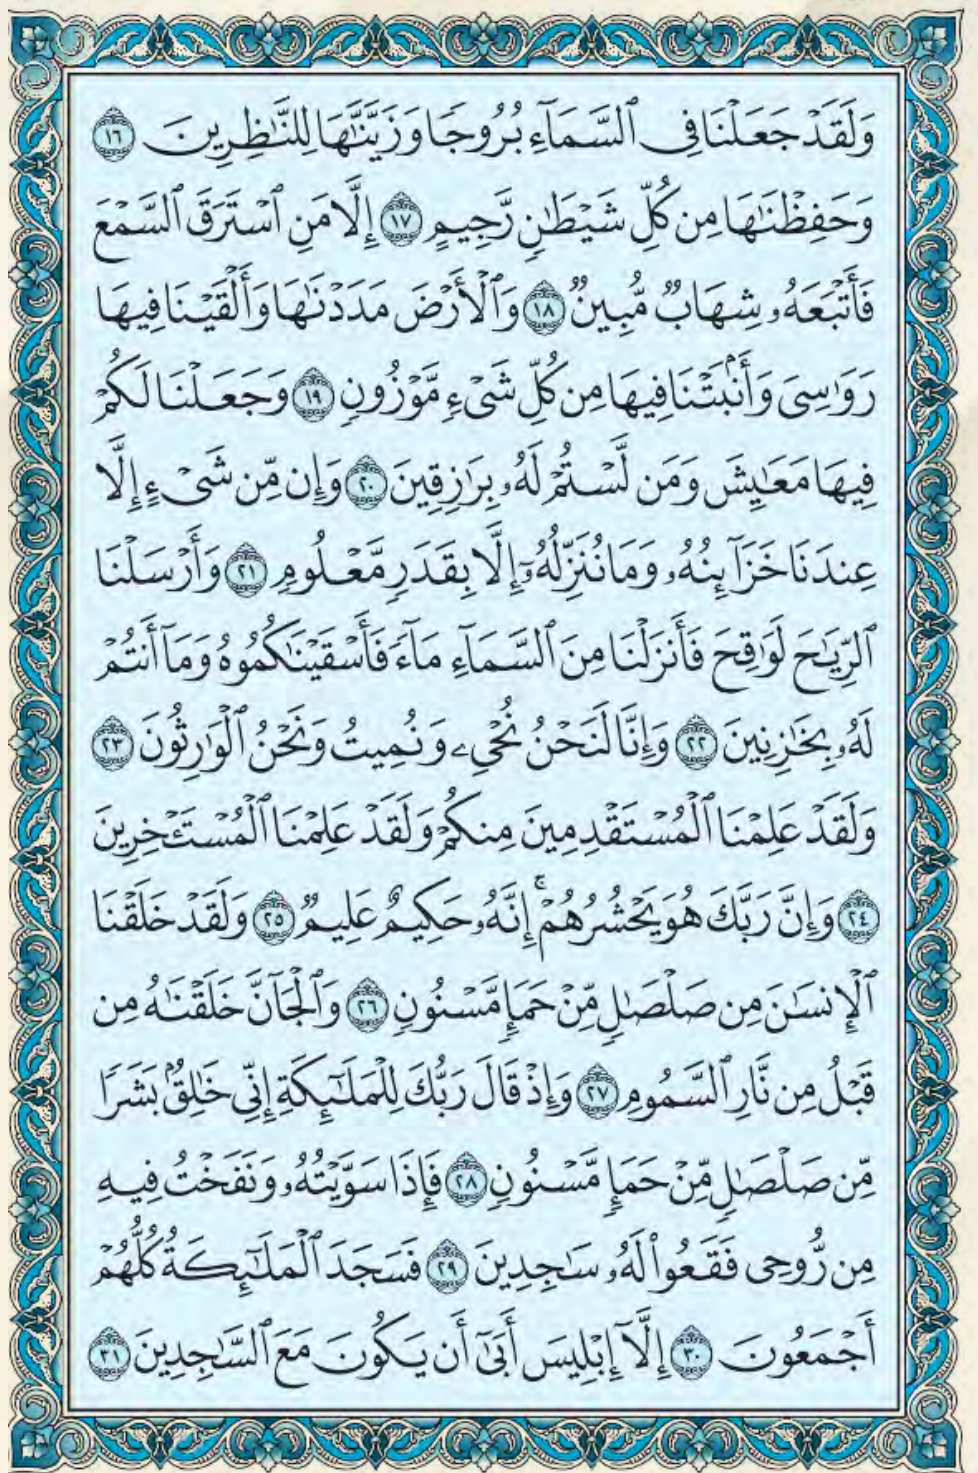 وَلَقَدْ جَعَلْنَا فِى ٱلسَّمَآءِ بُرُوجًا وَزَيَّنَّٰهَا لِلنَّٰظِرِينَ ١٦
وَحَفِظْنَٰهَا مِن كُلِّ شَيْطَٰنٍ رَّجِيمٍ ١٧ إِلَّا مَنِ ٱسْتَرَقَ ٱلسَّمْعَ
فَأَتْبَعَهُۥ شِهَابٌ مُّبِينٌ ١٨ وَٱلْأَرْضَ مَدَدْنَٰهَا وَأَلْقَيْنَا فِيهَا
رَوَٰسِىَ وَأَنۢبَتْنَا فِيهَا مِن كُلِّ شَىْءٍ مَّوْزُونٍ ١٩ وَجَعَلْنَا لَكُمْ
فِيهَا مَعَٰيِشَ وَمَن لَّسْتُمْ لَهُۥ بِرَٰزِقِينَ ٢٠ وَإِن مِّن شَىْءٍ إِلَّا
عِندَنَا خَزَآئِنُهُۥ وَمَا نُنَزِّلُهُۥٓ إِلَّا بِقَدَرٍ مَّعْلُومٍ ٢١ وَأَرْسَلْنَا
ٱلرِّيَٰحَ لَوَٰقِحَ فَأَنزَلْنَا مِنَ ٱلسَّمَآءِ مَآءً فَأَسْقَيْنَٰكُمُوهُ وَمَآ أَنتُمْ
لَهُۥ بِخَٰزِنِينَ ٢٢ وَإِنَّا لَنَحْنُ نُحْىِۦ وَنُمِيتُ وَنَحْنُ ٱلْوَٰرِثُونَ ٢٣
وَلَقَدْ عَلِمْنَا ٱلْمُسْتَقْدِمِينَ مِنكُمْ وَلَقَدْ عَلِمْنَا ٱلْمُسْتَـْٔخِرِينَ
٢٤ وَإِنَّ رَبَّكَ هُوَ يَحْشُرُهُمْ ۚ إِنَّهُۥ حَكِيمٌ عَلِيمٌ ٢٥ وَلَقَدْ خَلَقْنَا
ٱلْإِنسَٰنَ مِن صَلْصَٰلٍ مِّنْ حَمَإٍ مَّسْنُونٍ ٢٦ وَٱلْجَآنَّ خَلَقْنَٰهُ مِن
قَبْلُ مِن نَّارِ ٱلسَّمُومِ ٢٧ وَإِذْ قَالَ رَبُّكَ لِلْمَلَٰٓئِكَةِ إِنِّى خَٰلِقٌۢ بَشَرًا
مِّن صَلْصَٰلٍ مِّنْ حَمَإٍ مَّسْنُونٍ ٢٨ فَإِذَا سَوَّيْتُهُۥ وَنَفَخْتُ فِيهِ
مِن رُّوحِى فَقَعُوا۟ لَهُۥ سَٰجِدِينَ ٢٩ فَسَجَدَ ٱلْمَلَٰٓئِكَةُ كُلُّهُمْ
أَجْمَعُونَ ٣٠ إِلَّآ إِبْلِيسَ أَبَىٰٓ أَن يَكُونَ مَعَ ٱلسَّٰجِدِينَ ٣١